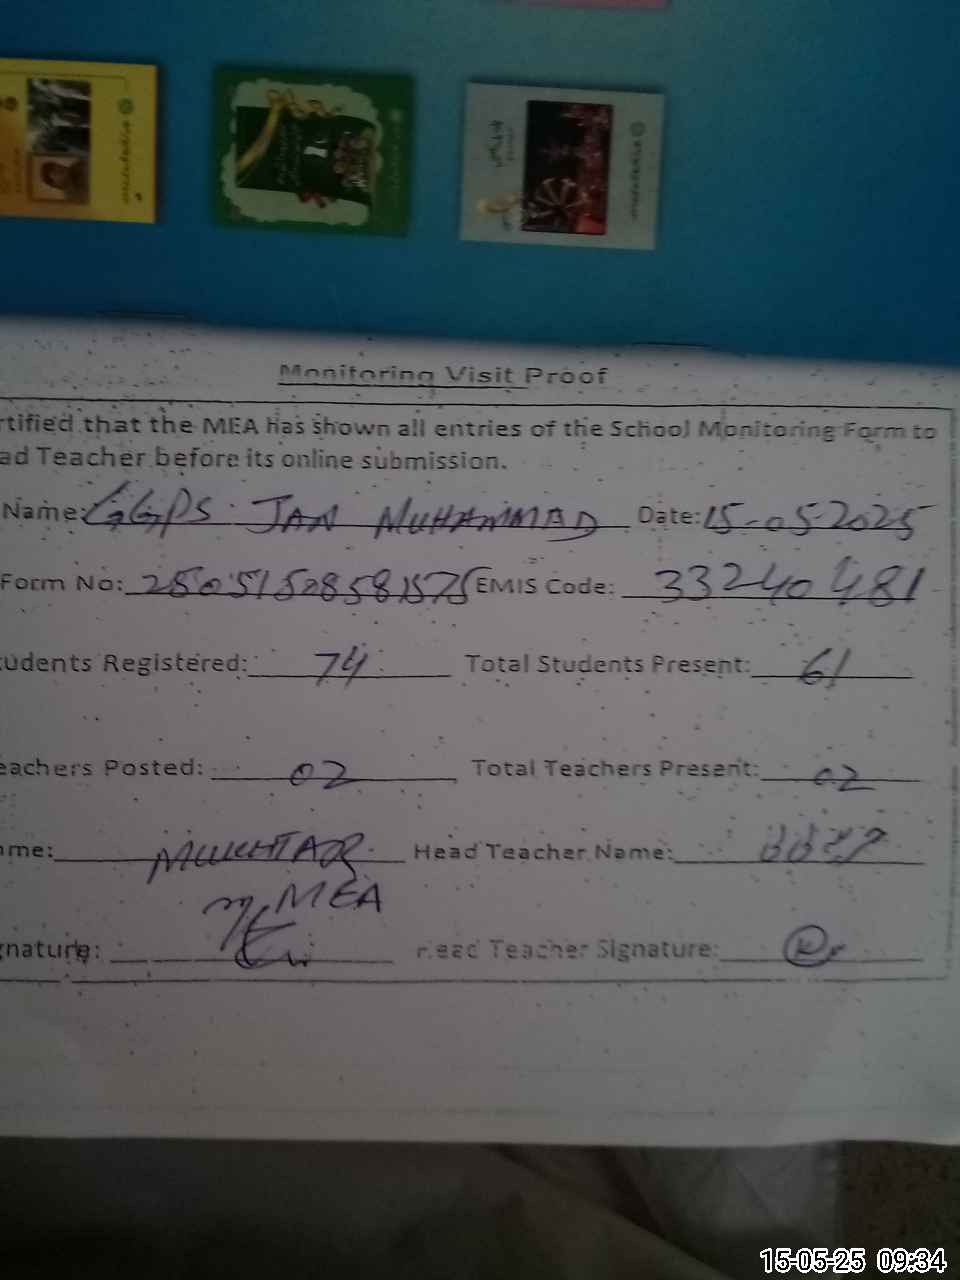 Monitoring Visit Proof
rtified that the MEA has shown all entries of the School Monitoring Form to
ad Teacher before its online submission.
Name: GGPS JAN MUHAMMAD Date: 15-05-2025
Form No: EMIS Code: 33240481
udents Registered: 74 Total Students Present: 61
eachers Posted: 02 Total Teachers Present: 02
me: MUKHTAR Head Teacher Name:
MEA
gnature: Head Teacher Signature:
15-05-25 09:34